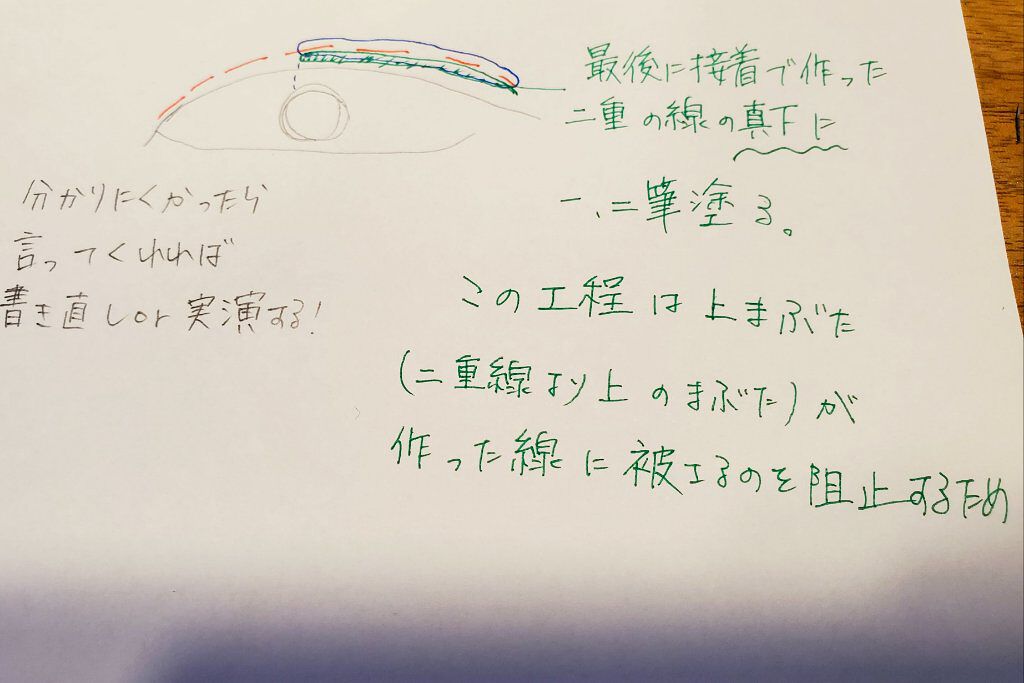 最後に接着で作った
二重の線の真下に
一、二筆塗る。
分かりにくかったら
言ってくれれば
書き直しor実演する!
この工程は上まぶた
(二重線より上のまぶた)が
作った線に被さるのを阻止するため